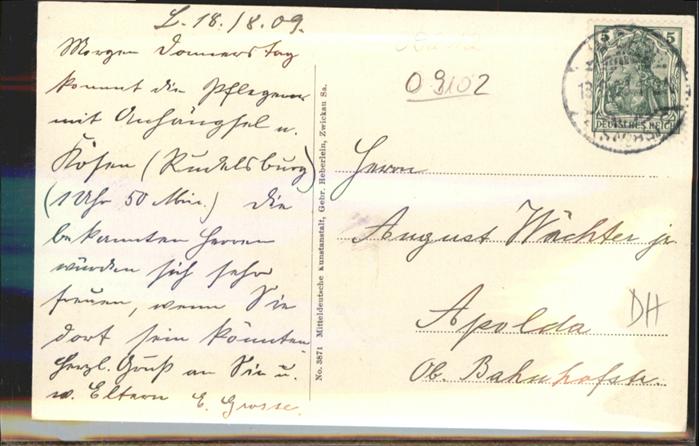 L. 18./8.09.
Morgen Donnerstag
kommt die Pflegerin
mit Anhängsel n.
Kösen (Rudelsburg)
(1 Uhr 50 Min.) Die
bekannten Herren
würden sich sehr
freuen, wenn Sie
dort sein könnten,
Herzl. Gruß an Sie u.
w. Eltern E. Grosse.
No. 3871 Mitteldeutsche Kunstanstalt, Gebr. Heberlein, Zwickau Sa.
09102
5 5
DEUTSCHES REICH
Herrn
August Wächter jr
Apolda
Ob. Bahnhofstr.
DH